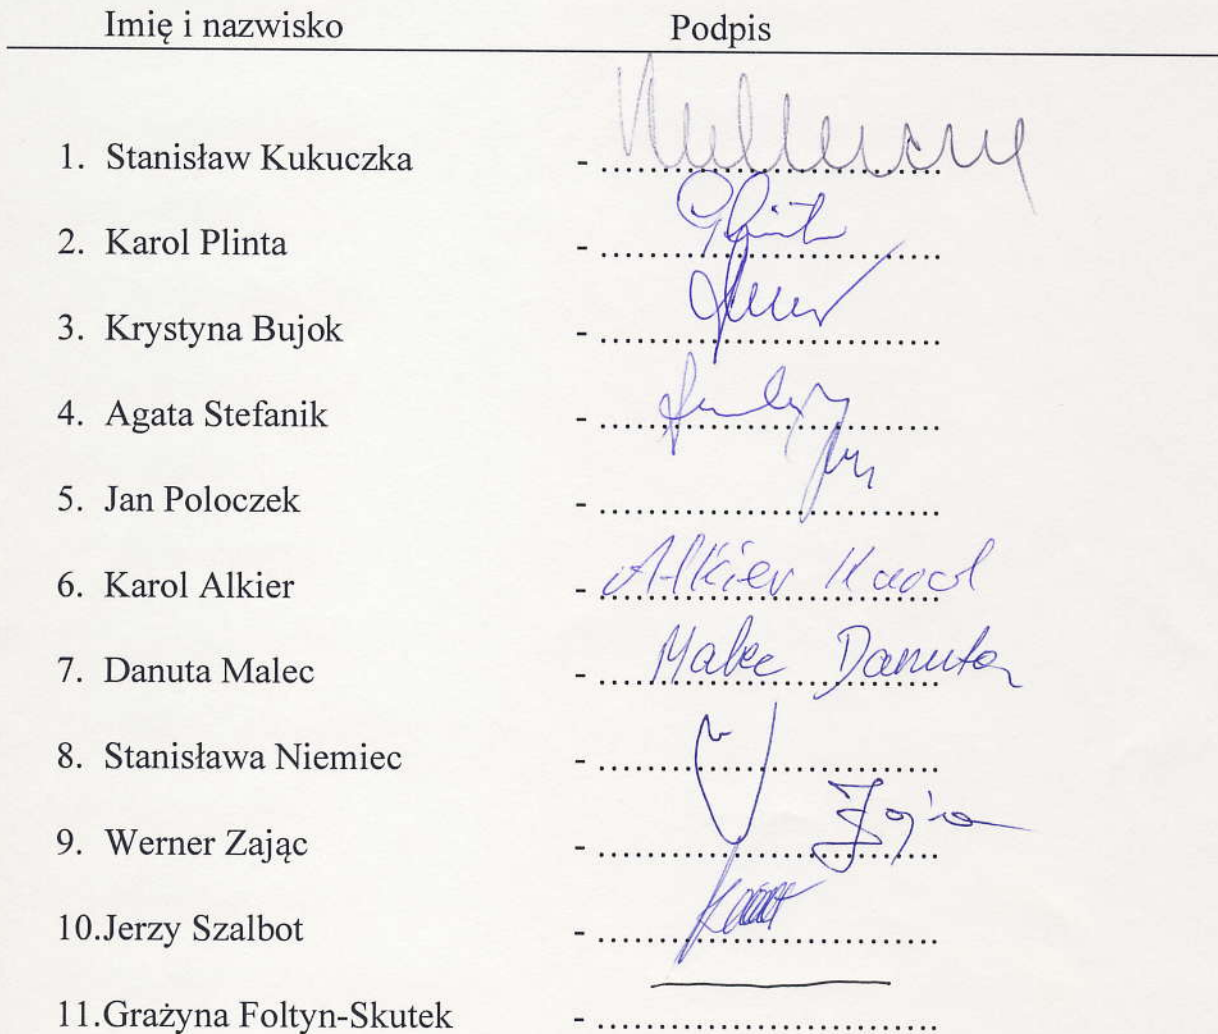 Imię i nazwisko Podpis
1. Stanisław Kukuczka - ..............................
2. Karol Plinta - ..............................
3. Krystyna Bujok - ..............................
4. Agata Stefanik - ..............................
5. Jan Poloczek - ..............................
6. Karol Alkier - Alkier Karol
7. Danuta Malec - Malec Danuta
8. Stanisława Niemiec - ..............................
9. Werner Zając - ..............................
10.Jerzy Szalbot - ..............................
11.Grażyna Foltyn-Skutek - ..............................